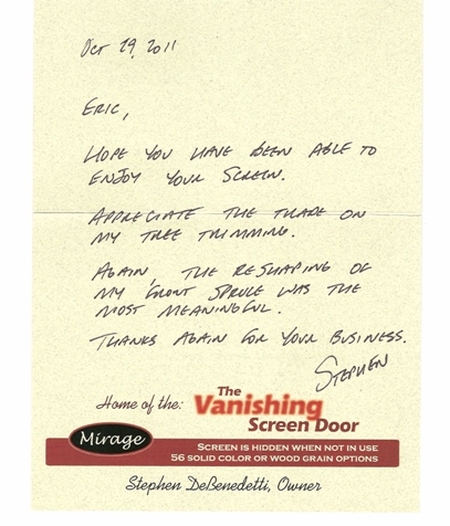 Oct 29, 2011
ERIC,
HOPE YOU HAVE BEEN ABLE TO
ENJOY YOUR SCREEN.
APPRECIATE THE TRADE ON
MY TREE TRIMMING.
AGAIN, THE RESHAPING OF
MY FRONT SPRUCE WAS THE
MOST MEANINGFUL.
THANKS AGAIN FOR YOUR BUSINESS.
STEPHEN
Home of the: The Vanishing Screen Door
Mirage
SCREEN IS HIDDEN WHEN NOT IN USE
56 SOLID COLOR OR WOOD GRAIN OPTIONS
Stephen DeBenedetti, Owner